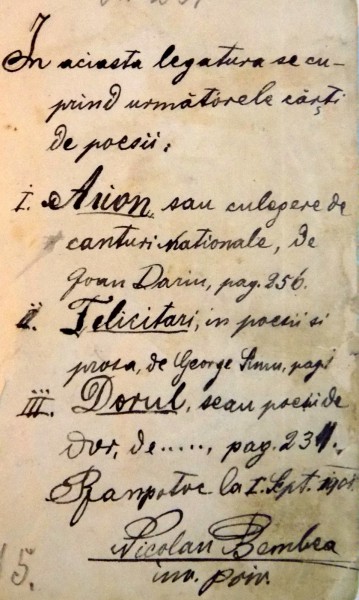 In aciasta legatura se cu-
prind următorele cărți
de poesii:
I. Arion, sau culegere de
canturi nationale, de
Ioan Dariu, pag. 256.
II. Felicitari, in poesii si
prosa, de George Simu, pag
III. Dorul, seau poesii de
dor, de....., pag. 231.
la I. Sept.
Nicolau Bembea
inv. poin.
5.